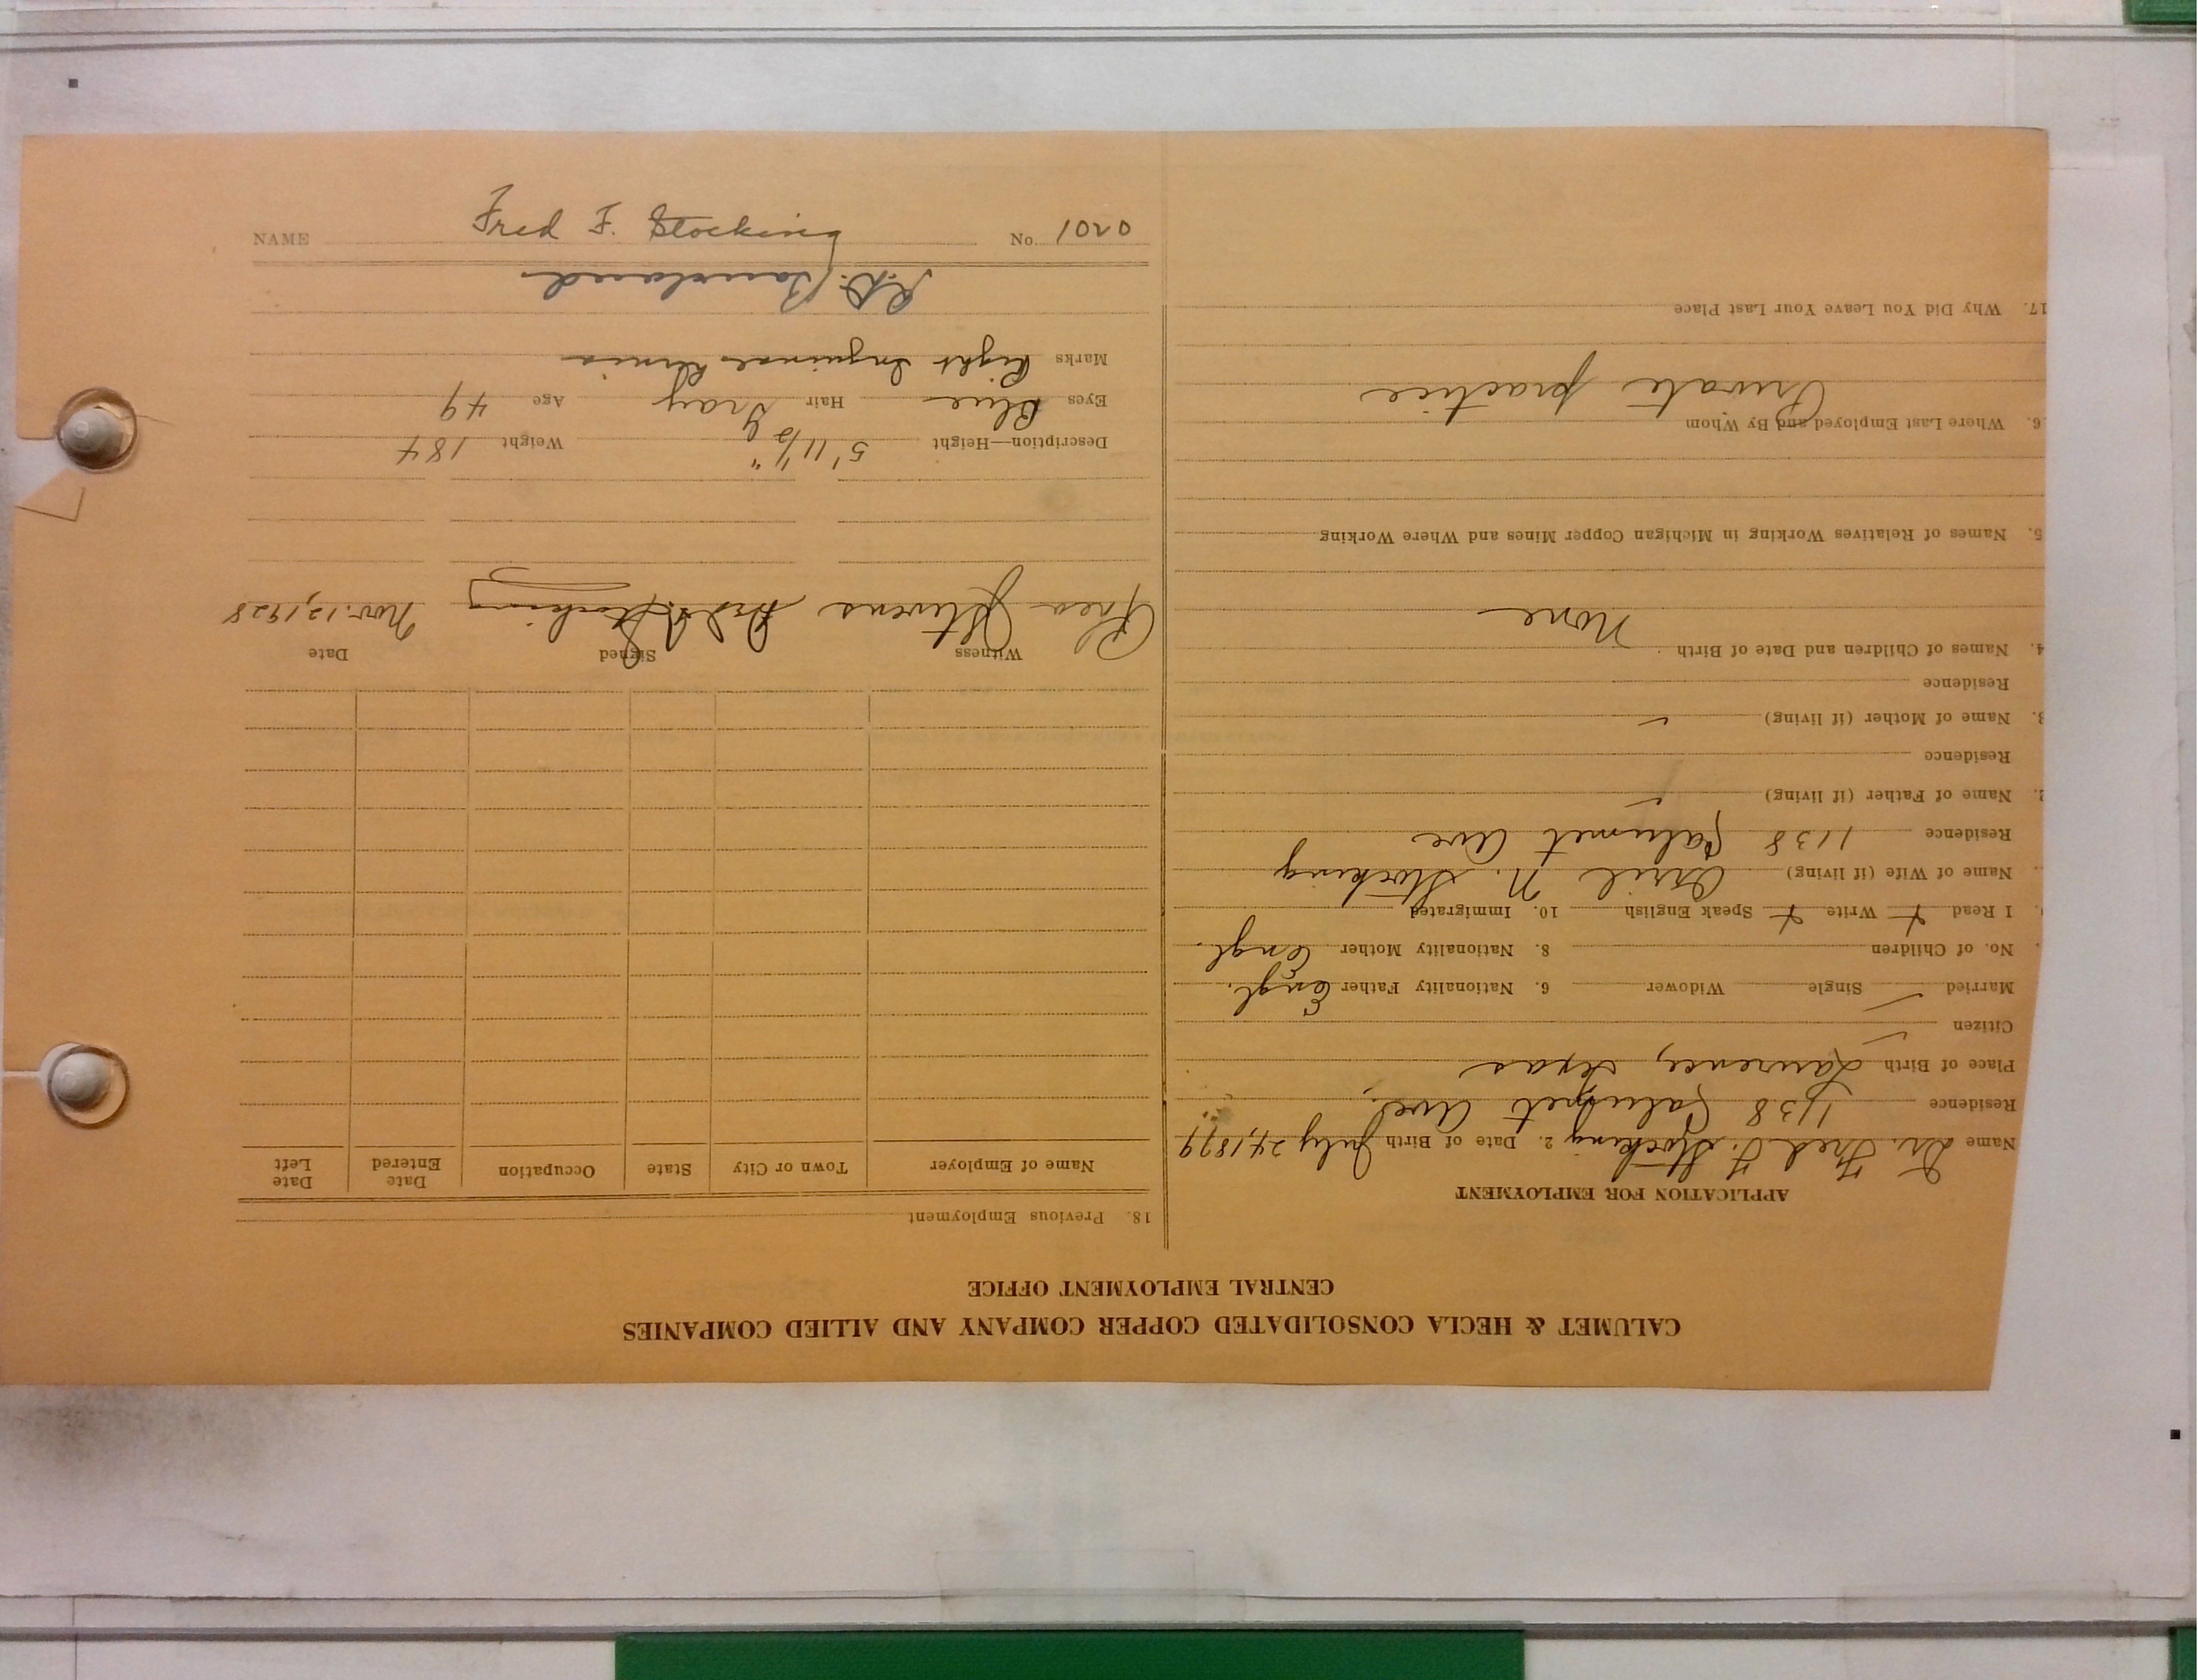 CALUMET & HECLA CONSOLIDATED COPPER COMPANY AND ALLIED COMPANIES
CENTRAL EMPLOYMENT OFFICE
APPLICATION FOR EMPLOYMENT
Name Dr. Fred F. Stocking 2. Date of Birth July 24, 1879
Residence 1138 Calumet Ave.
Place of Birth Lawrence,
Citizen ✓
Married ✓ Single Widower 6. Nationality Father Engl.
No. of Children 8. Nationality Mother Engl.
I Read Write Speak English 10. Immigrated
Name of Wife (if living) N. Stocking
Residence 1138 Calumet Ave
2. Name of Father (if living) ✓
Residence
3. Name of Mother (if living) ✓
Residence
4. Names of Children and Date of Birth
None
5. Names of Relatives Working in Michigan Copper Mines and Where Working
6. Where Last Employed and By Whom
Private practice
17. Why Did You Leave Your Last Place
18. Previous Employment
Name of Employer Town or City State Occupation Date Entered Date Left
Witness Signed Date
Rhea Stevens Fred F. Stocking Nov. 12, 1928
Description—Height 5' 11 1/2" Weight 184
Eyes Blue Hair Gray Age 49
Marks Right Inguinal Hernia
NAME Fred F. Stocking No. 1020